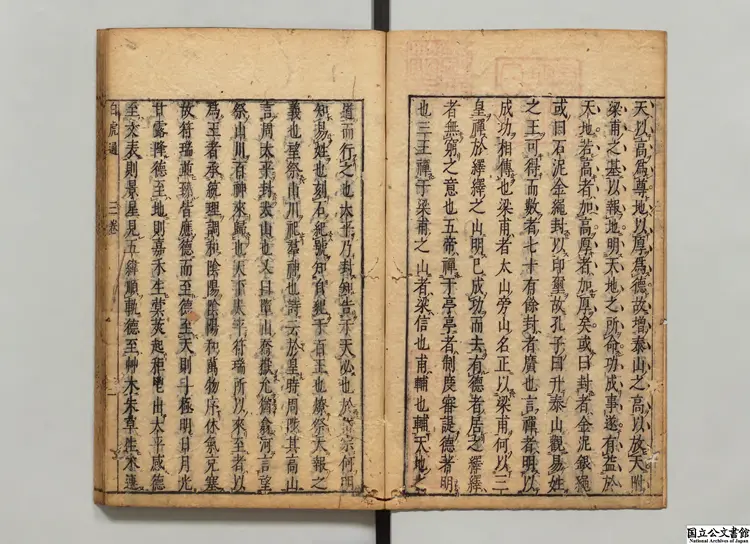 天以高爲尊地以厚爲德故增泰山之高以放天附
梁甫之基以報地明天地之所命功成事遂有益於
天地若高者加高厚者加厚矣或曰封者金泥銀繩
或曰石泥金繩封以印璽故孔子曰升泰山觀易姓
之王可得而數者七十有餘封者廣也言禪者明以
成功相傳也梁甫者太山旁山名正以梁甫何以三
皇禪於繹繹之山明已成功而去有德者居之繹繹
者無窮之意也五帝禪于亭亭者制度審諟德著明
也三王禪于梁甫之山者梁信也甫輔也輔天地之
道而行之也太平乃封知告于天必也於岱宗何明
知易姓也刻石紀號知自紀于百王也燎祭天報之
義也望祭山川祀羣神也詩云於皇時周陟其高山
言周太平封太山也又曰墮山喬嶽允猶翕河言望
祭山川百神來歸也天下太平符瑞所以來至者以
爲王者承統理調和陰陽陰陽和萬物序休氣充塞
故符瑞並臻皆應德而至德至天則斗極明日月光
甘露降德至地則嘉禾生蓂莢起秬鬯出太平感德
至文表則景星見五緯順軌德至艸木朱草生木連
白虎通 三卷
国立公文書館
National Archives of Japan